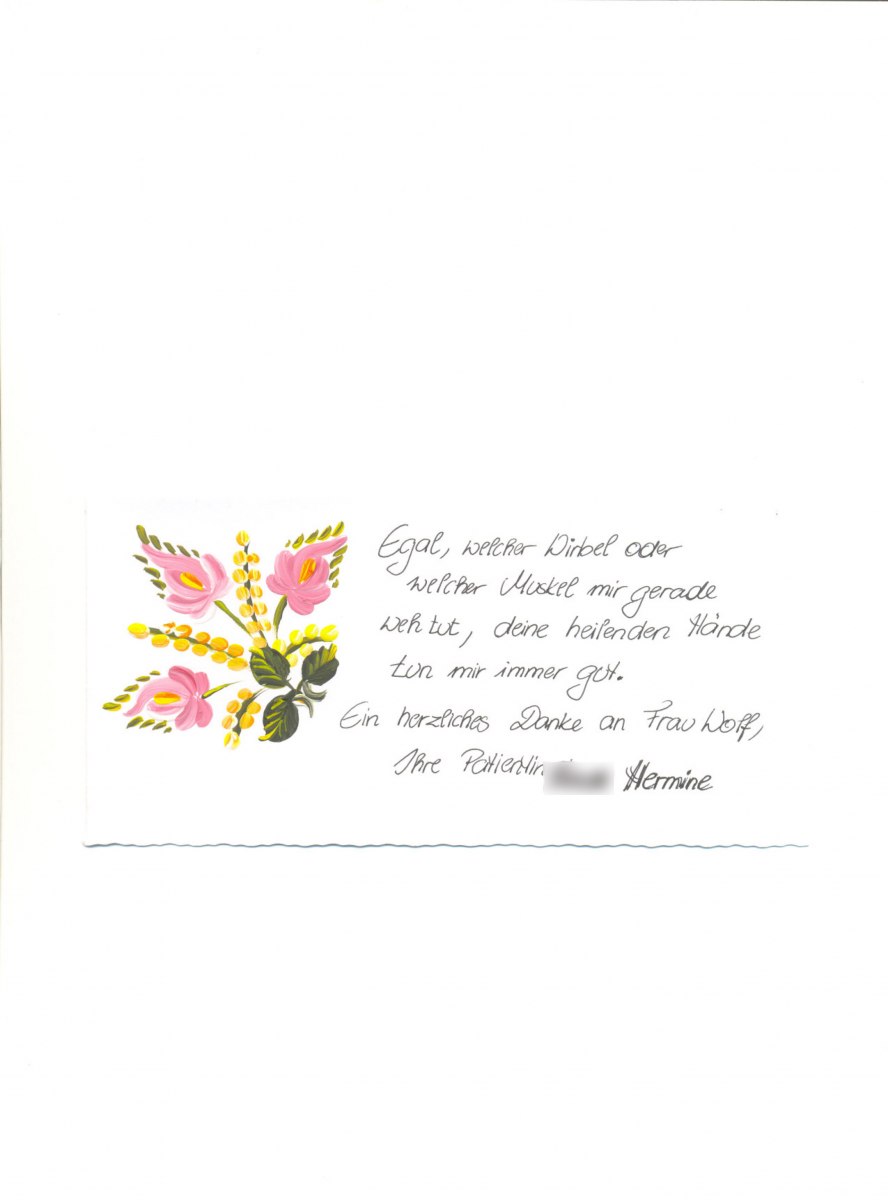 Egal, welcher Wirbel oder
welcher Muskel mir gerade
weh tut, deine heilenden Hände
tun mir immer gut.
Ein herzliches Danke an Frau Wolf,
Ihre Patientin Hermine